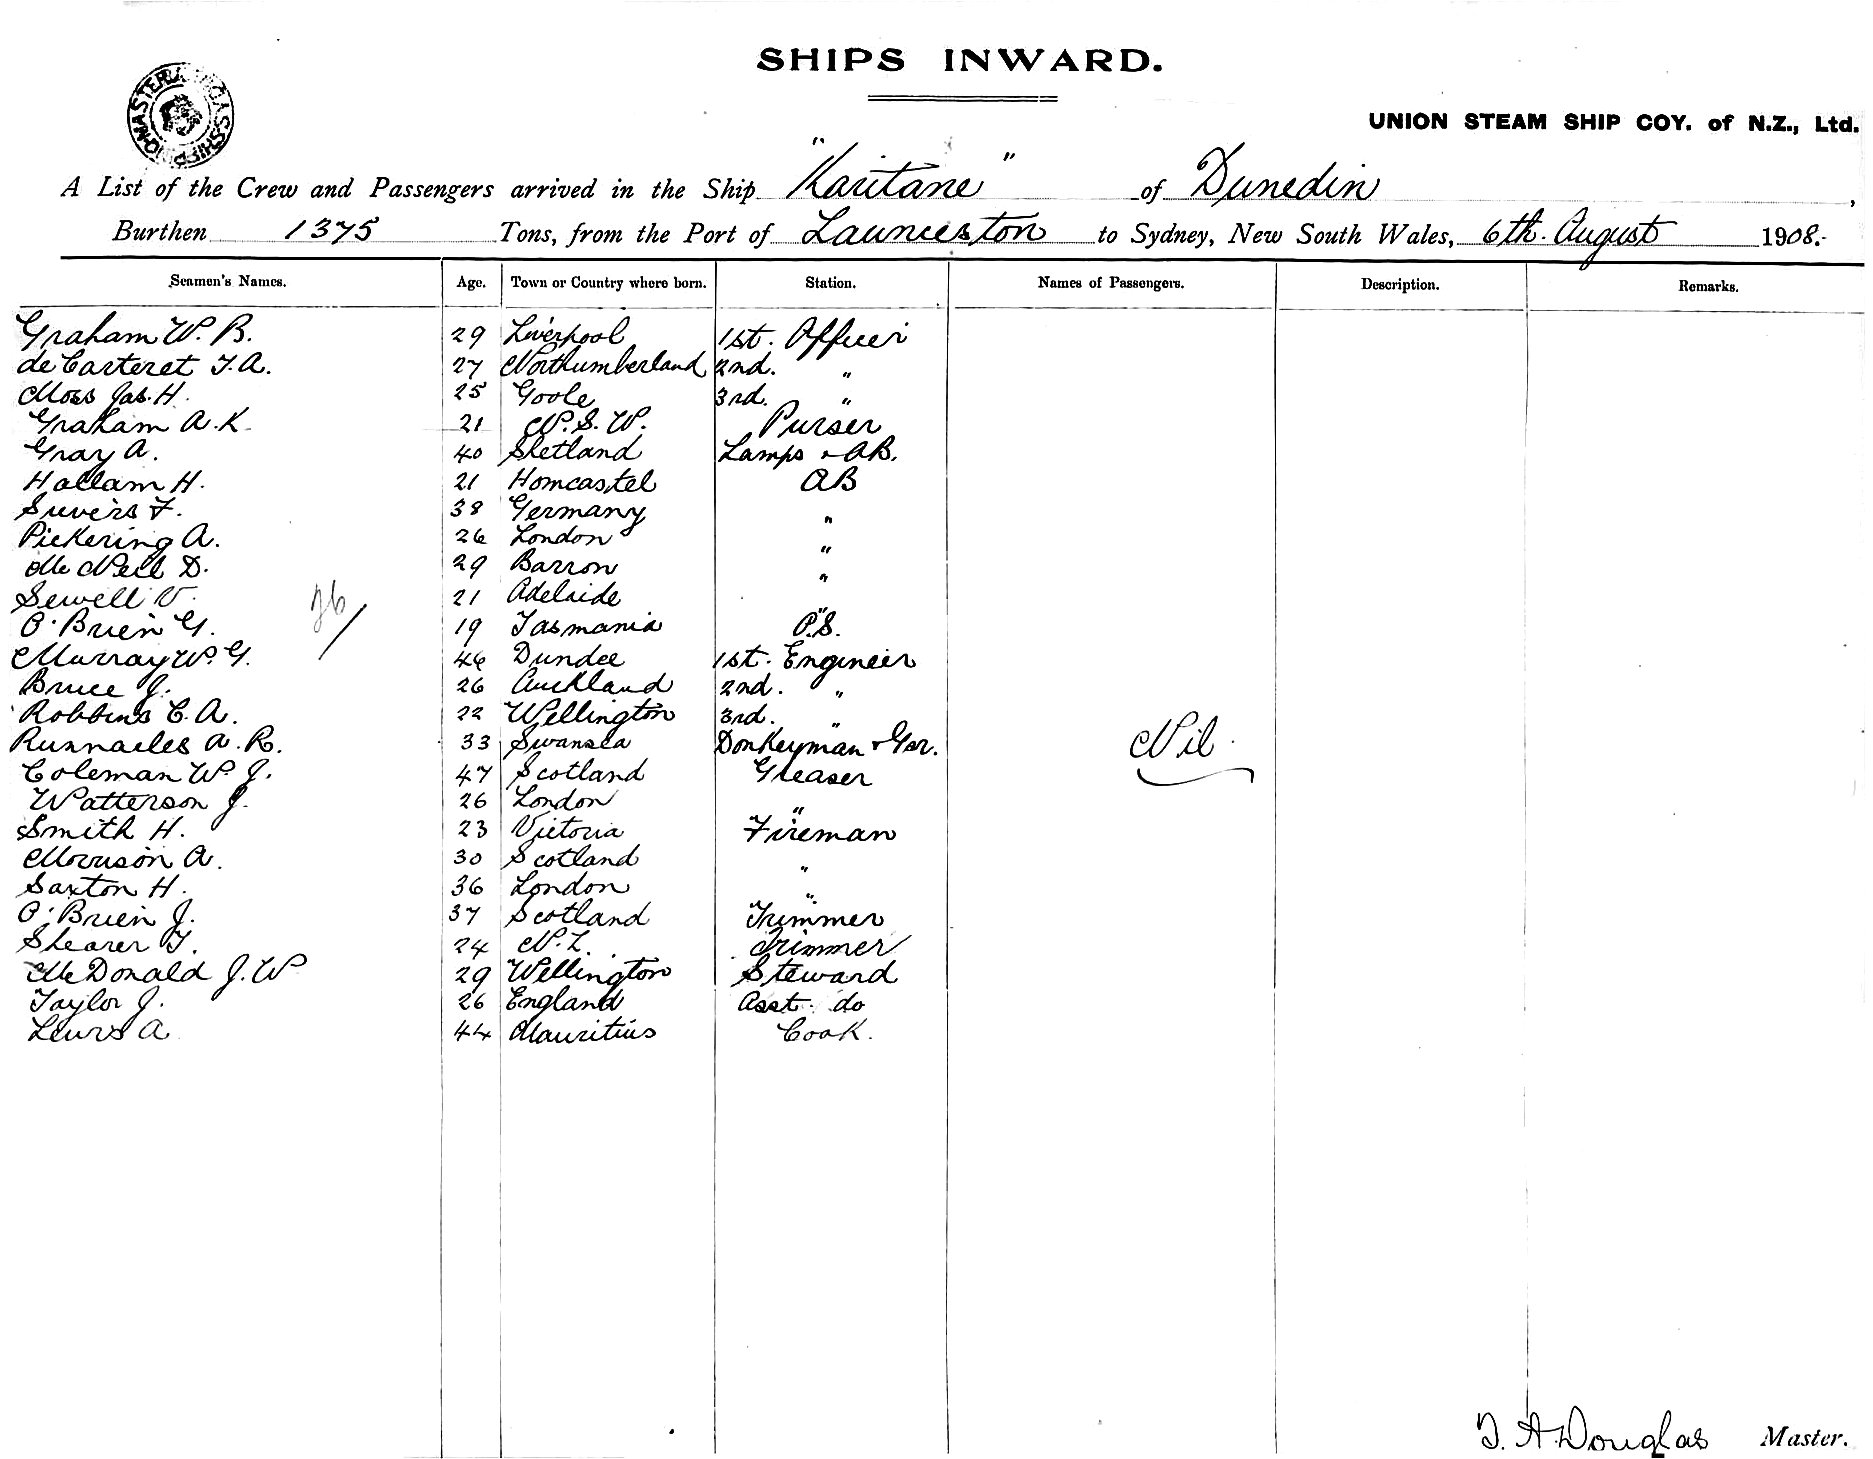 SHIPS INWARD.
UNION STEAM SHIP COY. of N.Z., Ltd.
A List of the Crew and Passengers arrived in the Ship "Karitane" of Dunedin,
Burthen 1375 Tons, from the Port of Launceston to Sydney, New South Wales, 6th. August 1908.
Seamen's Names. Age. Town or Country where born. Station. Names of Passengers. Description. Remarks.
Graham W. B. 29 Liverpool 1st. Officer
de Carteret T. A. 27 Northumberland 2nd. "
Moss Jas. H. 25 Goole 3rd. "
Graham A. K. 21 N. S. W. Purser
Gray A. 40 Shetland Lamps & AB.
Hallam H. 21 Horncastel AB
Suvers F. 38 Germany "
Pickering A. 26 London "
Mc Neil D. 29 Barron "
Sewell V. 21 Adelaide "
O'Brien G. 19 Tasmania O.S.
26/
Murray W. G. 46 Dundee 1st. Engineer
Bruce J. 26 Auckland 2nd. "
Robbins C. A. 22 Wellington 3rd. "
Runnacles A. R. 33 Swansea Donkeyman & Gsr.
Nil
Coleman W. J. 47 Scotland Greaser
Watterson J. 26 London "
Smith H. 23 Victoria Fireman
Morrison A. 30 Scotland "
Saxton H. 36 London "
O'Brien J. 37 Scotland Trimmer
Shearer T. 24 N. Z. Trimmer
Mc Donald J. W 29 Wellington Steward
Taylor J. 26 England Asst. do
Lewis A 44 Mauritius Cook.
T. A. Douglas Master.